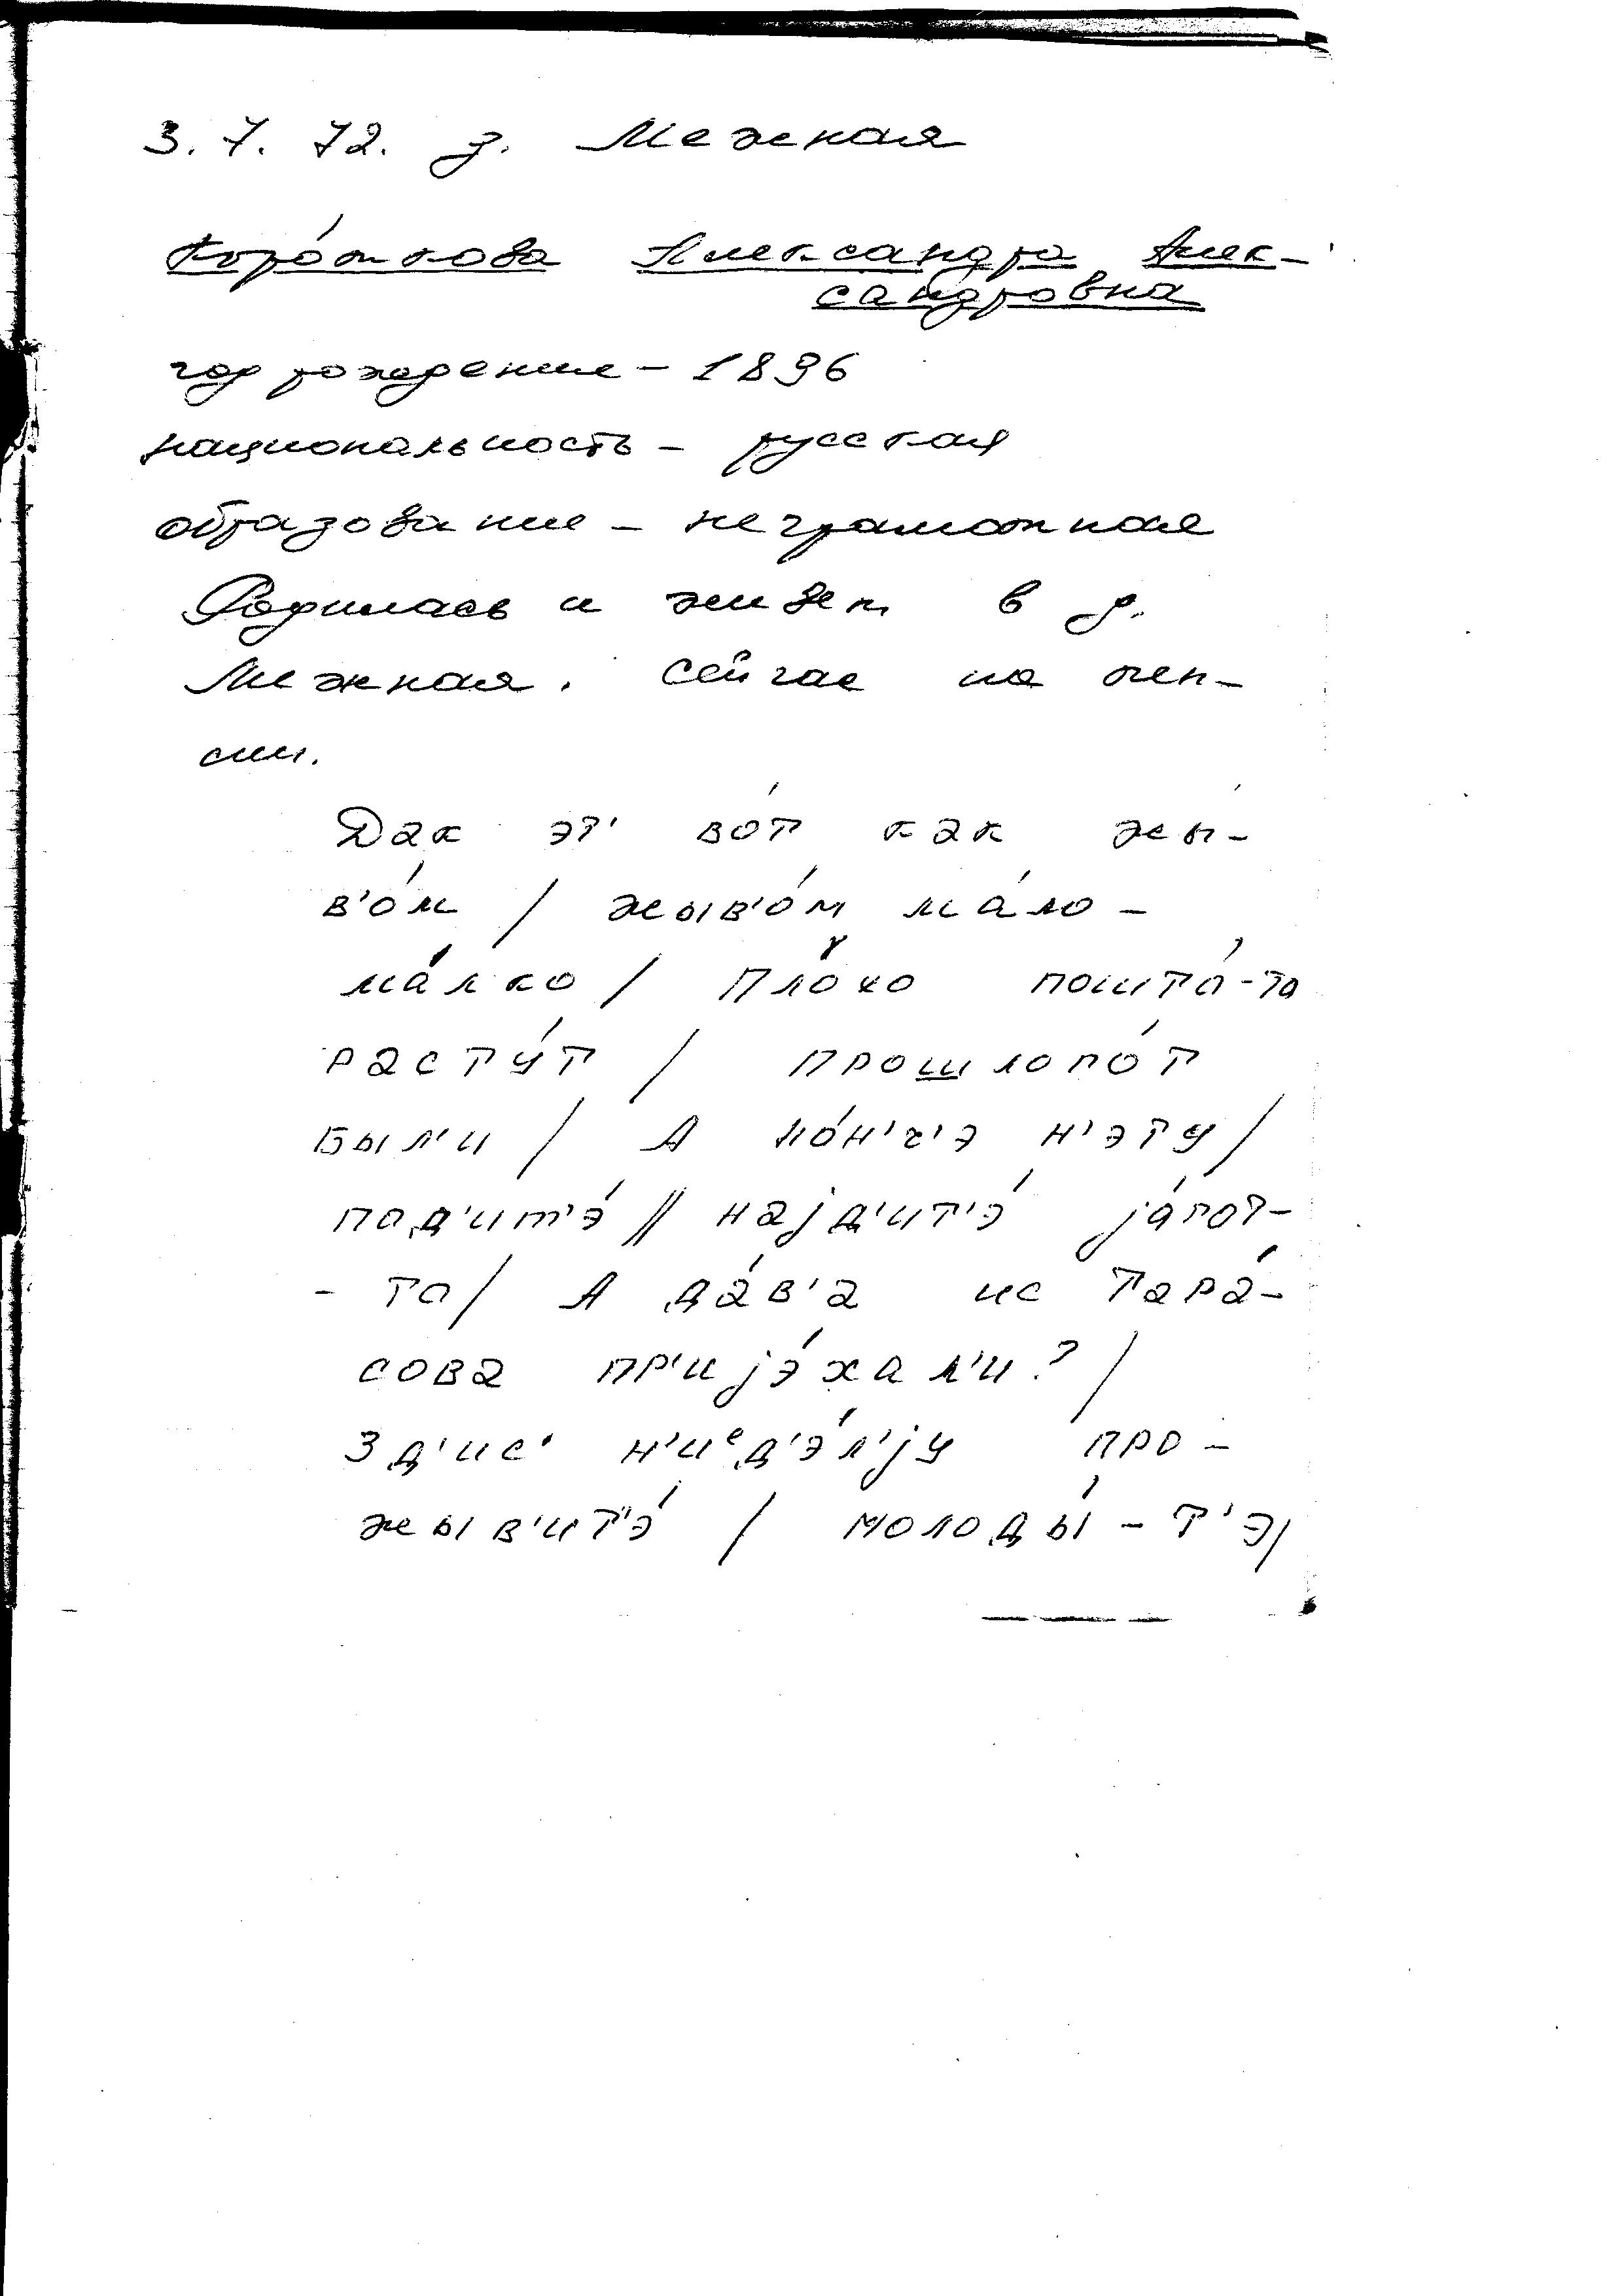 3. 7. 72. д. Межная
Коро́ткова Александра Алек-
сандровна
год рождения – 1896
национальность – русская
образование – неграмотная
Родилась и живет в д.
Межная. Сейчас на пен-
сии.
Дак эт' во́т как жы-
в'о́м / жыв'о́м ма́ло-
ма́лко / пло́хо пошто́-то
расту́т / прошлого́т
был'и / а но́н'ч'э н'эту /
под'ит'э́ // најд'ит'э́ ја́гот-
- то / а да́в'а ис Тара́-
сова пр'ијэ́хал'и? /
Зд'ис' н'иᵉд'э́л'ју про-
жыв'ит'э́ / молоды́ - т'э /